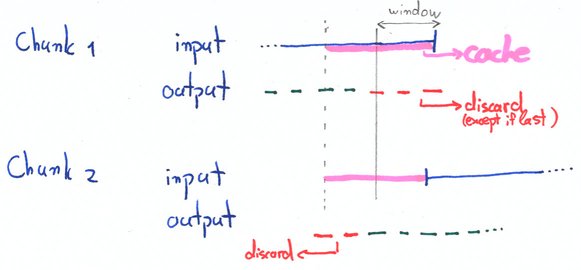 window
Chunk 1 input ... cache
output discard
(except if last)
Chunk 2 input ....
output ...
discard